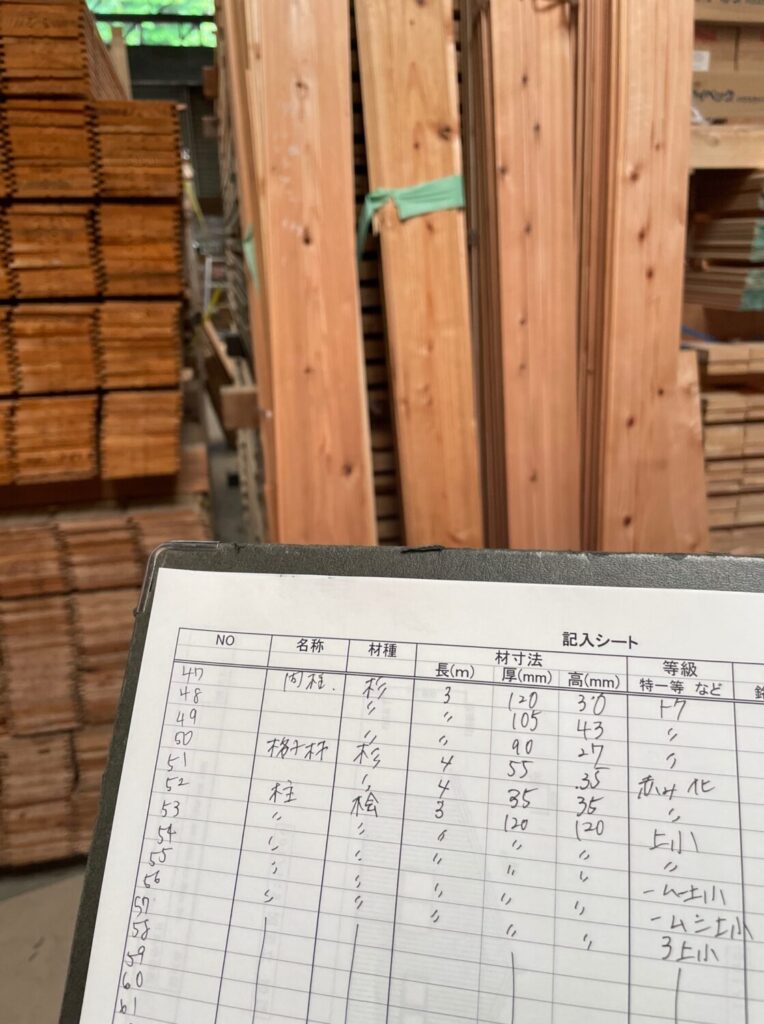 記入シート
NO 名称 材種 材寸法 等級
長(m) 厚(mm) 高(mm) 特一等 など
47 間柱 杉 3 120 30 トク
48 〃 〃 105 43 〃
49 〃 〃 90 27 〃
50 格子材 杉 4 55 35 赤み 化
51 〃 4 35 35 〃
52 柱 桧 3 120 120 上小
53 〃 〃 〃 〃 〃 〃
54 〃 〃 〃 〃 〃 上小
55 〃 〃 〃 〃 〃 上小
56 〃 〃 〃 〃 〃 3上小
57
58
59
60
61